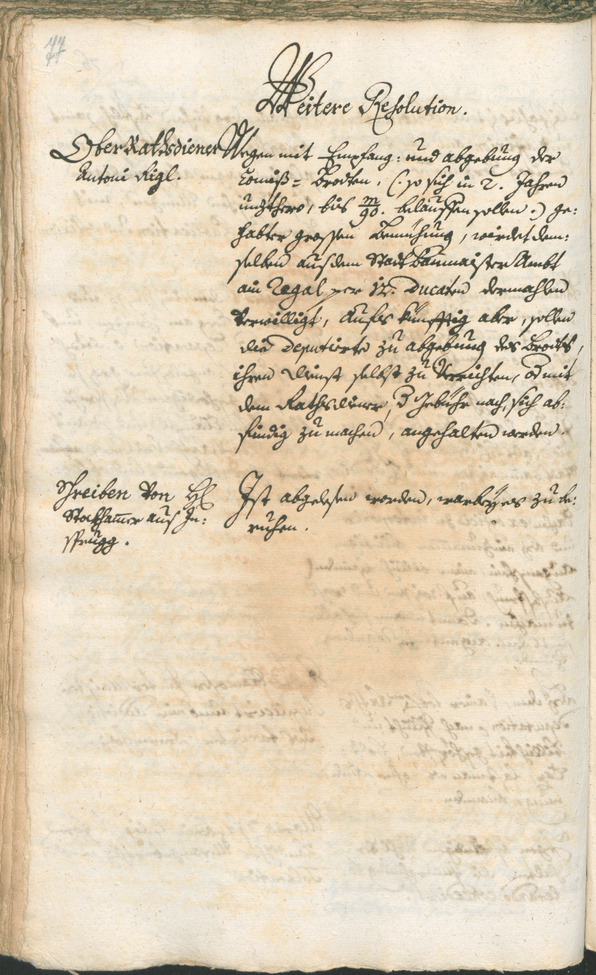 77
Weitere Resolution.
Ober Rathsdiener
Antoni Rigl.
Wegen mit Empfang: und abgebung der
Comiß= Brodten, (: so sich in 2. Jahren
unzhero, bis 90. belauffen sollen :) ge:
habter grossen Bemühung, würdet dem:
selben aus dem Stadt Baumaister Ambt
ain Regal per 12. Ducaten dermahlen
verwilligt, aufs künfftig aber, sollen
die Deputierte zu abgebung des Brodts,
ihren Dienst selbst zu verrichten, mit
dem Rathsdiener, Gebühr nach, sich ab:
findig zu machen, angehalten werden.
Schreiben von
Stockhamer aus In:
sprugg.
Ist abgelesen worden, warbeÿ es zu be:
ruhen.